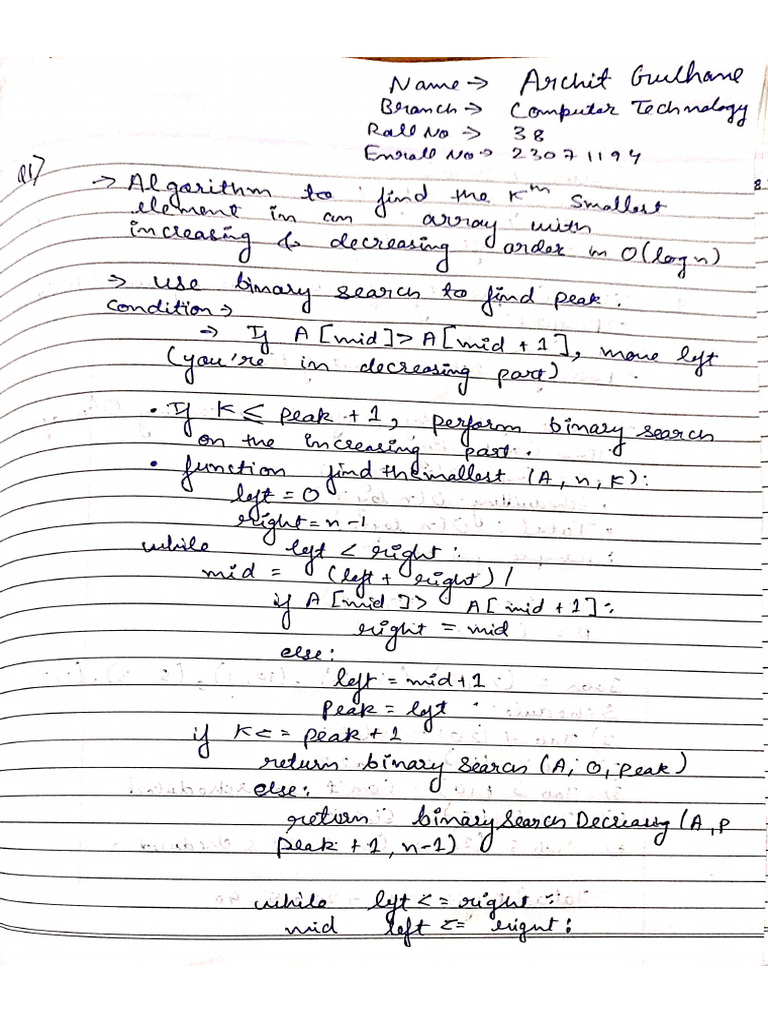 Name → Archit Gulhane
Branch → Computer Technology
Roll No → 38
Enroll No → 23071194
Q1)
→ Algorithm to find the Kth smallest
element in an array with
increasing & decreasing order in O(log n)
→ use binary search to find peak.
condition →
→ If A[mid] > A[mid + 1], move left
(you're in decreasing part)
• If K ≤ peak + 1, perform binary search
on the increasing part.
• function find themallest (A, n, K):
left = 0
right = n-1
while left < right:
mid = (left + right) /
if A[mid] > A[mid + 1]:
right = mid
else:
left = mid + 1
peak = left
if K <= peak + 1
return binary search (A, 0, peak)
else:
return binary search Decreasing (A, P
peak + 1, n-1)
while left <= right:
mid left <= right: